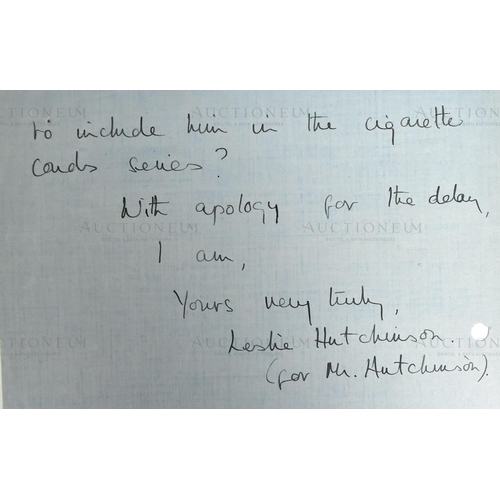 to include him in the cigarette
cards series?
With apology for the delay,
I am,
Yours very truly,
Leslie Hutchinson.
(for Mr. Hutchinson).
AUCTIONEUM